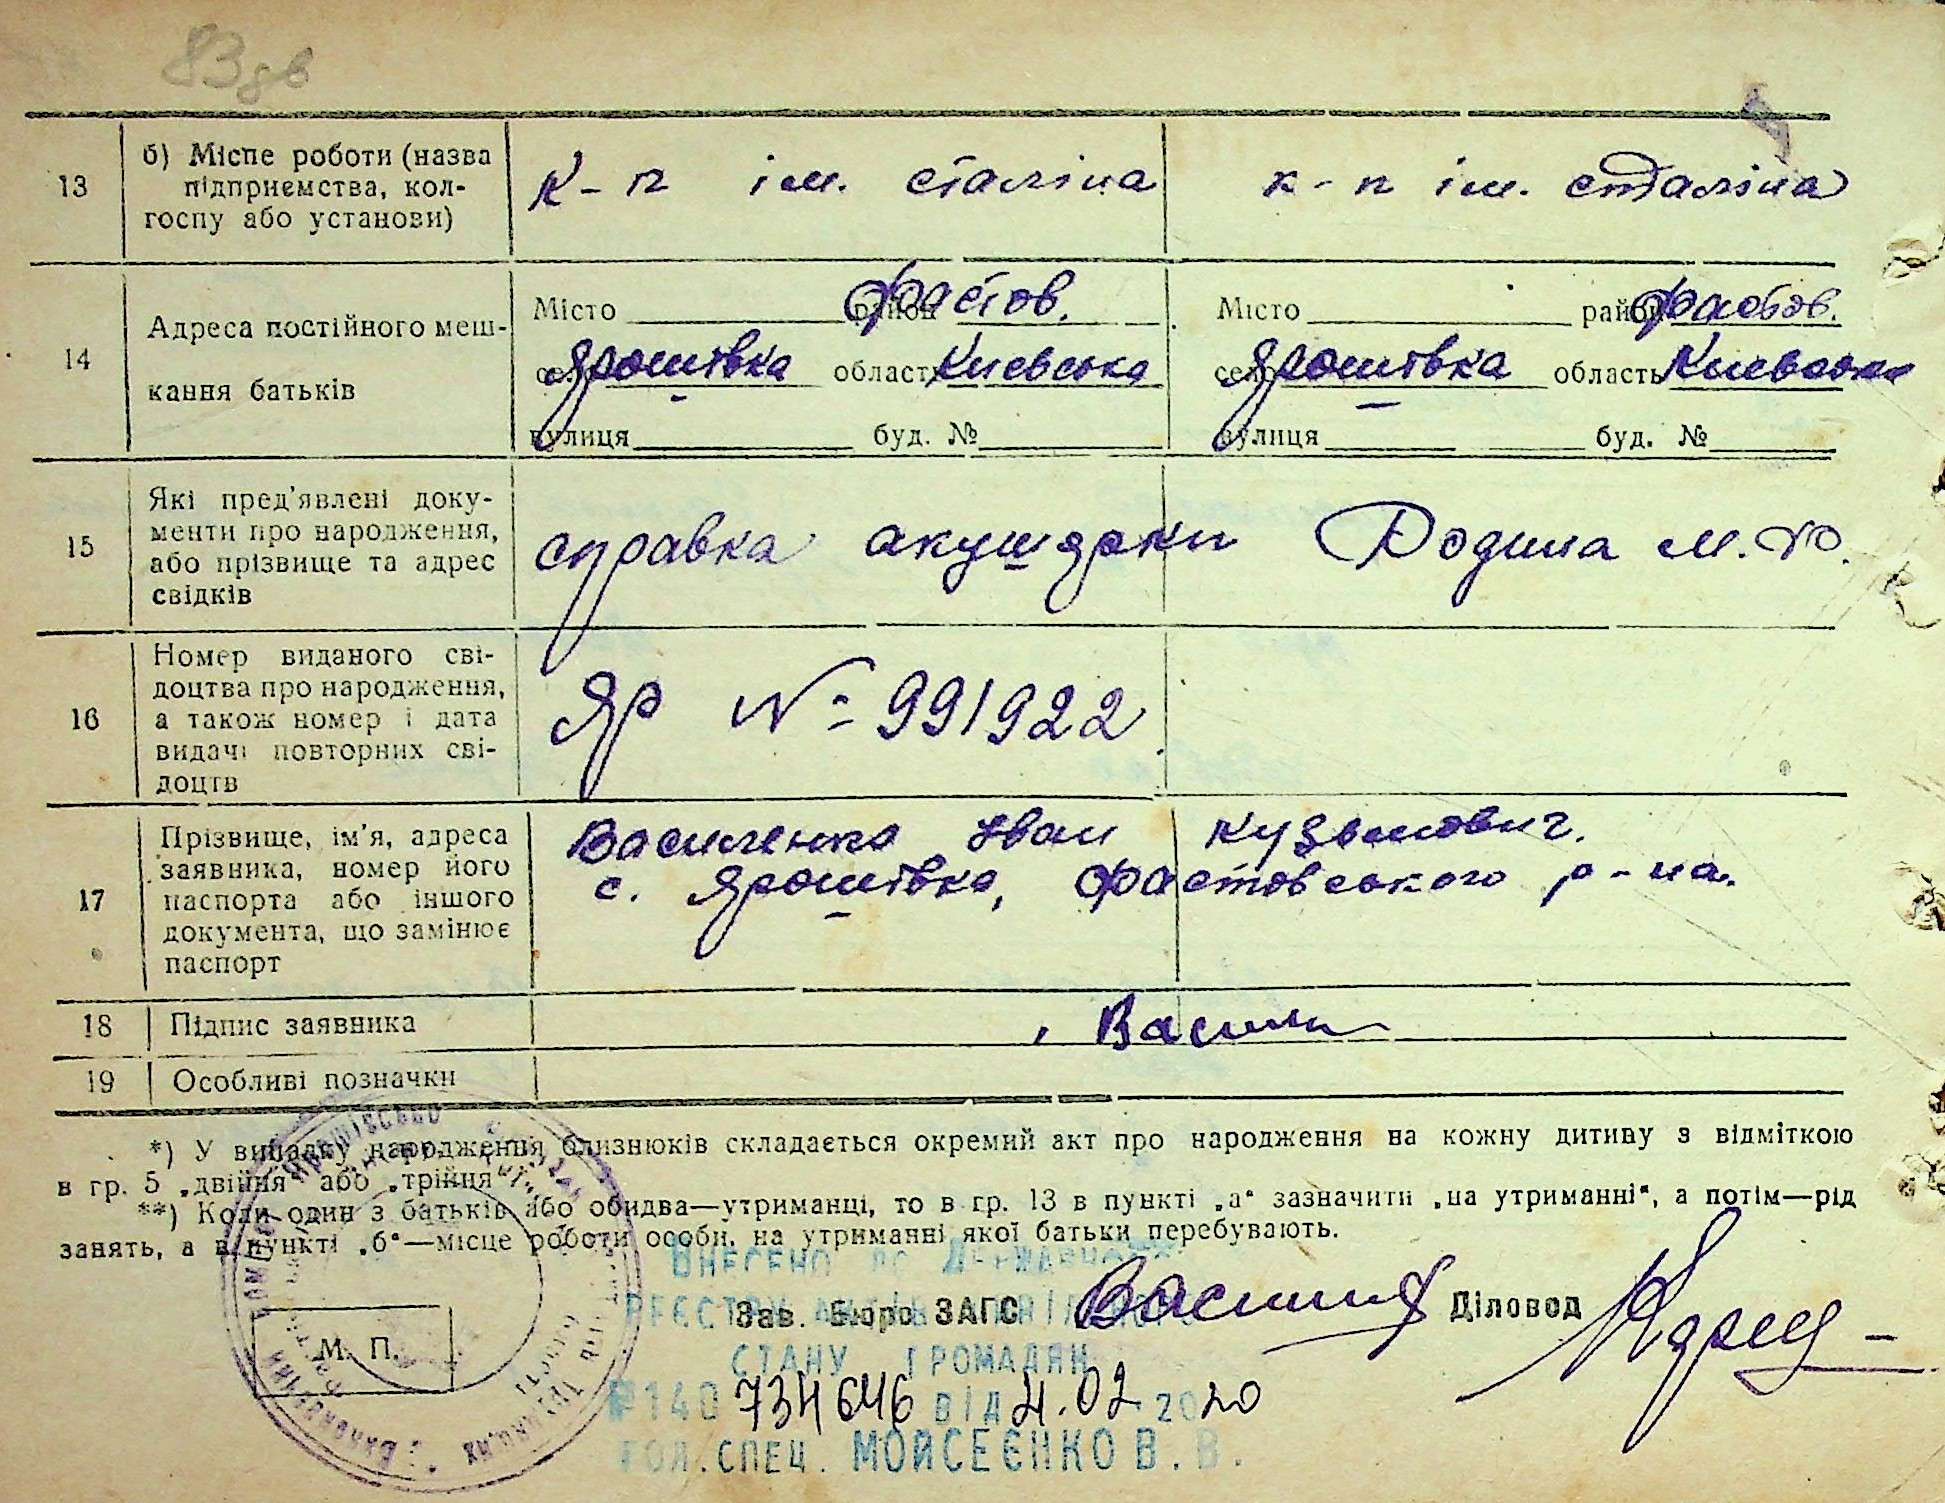 83дв
13
б) Місце роботи (назва
підприємства, кол-
госпу або установи)
к-п ім. сталіна
к-п ім. сталіна
14
Адреса постійного меш-
кання батьків
Місто район Фастов.
село Ярошівка область Киевська
вулиця буд. №
Місто район Фастов.
село Ярошівка область Киевська
вулиця буд. №
15
Які пред'явлені доку-
менти про народження,
або прізвище та адрес
свідків
справка акушерки Родина М. Ф.
16
Номер виданого сві-
доцтва про народження,
а також номер і дата
видачі повторних сві-
доцтв
ЯР № 991922
17
Прізвище, ім'я, адреса
заявника, номер його
паспорта або іншого
документа, що замінює
паспорт
Василенко Іван Кузьмович.
с. Ярошівка, Фастовського р-на.
18
Підпис заявника
Васили
19
Особливі позначки
*) У випадку народження близнюків складається окремий акт про народження на кожну дитину з відміткою
в гр. 5 „двійня“ або „трійця“.
**) Коли один з батьків або обидва—утриманці, то в гр. 13 в пункті „а“ зазначити „на утриманні“, а потім—рід
занять, а в пункті „б“—місце роботи особи, на утриманні якої батьки перебувають.
Внесено до Державного
реєстру актів цивільного
стану громадян
№140 734646 від 4.02.2020
гол. спец. Мойсеєнко В. В.
Зав. Бюро ЗАГС
Діловод
М. П.